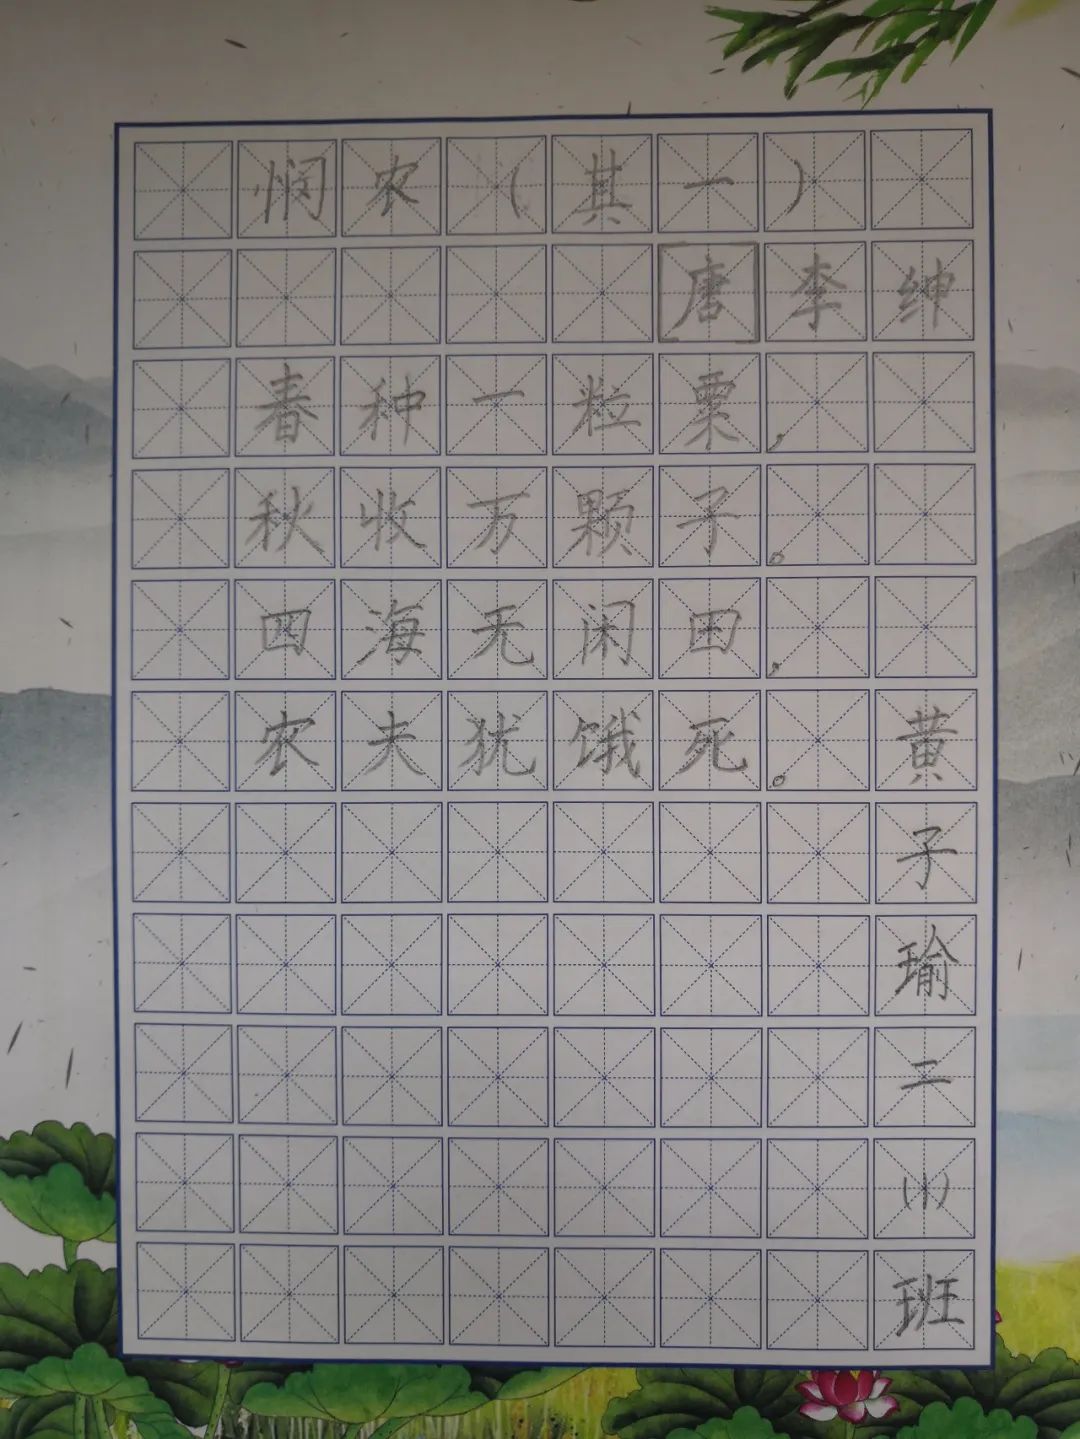 悯农（其一）
[唐]李绅
春种一粒粟，
秋收万颗子。
四海无闲田，
农夫犹饿死。
黄子瑜二（1）班